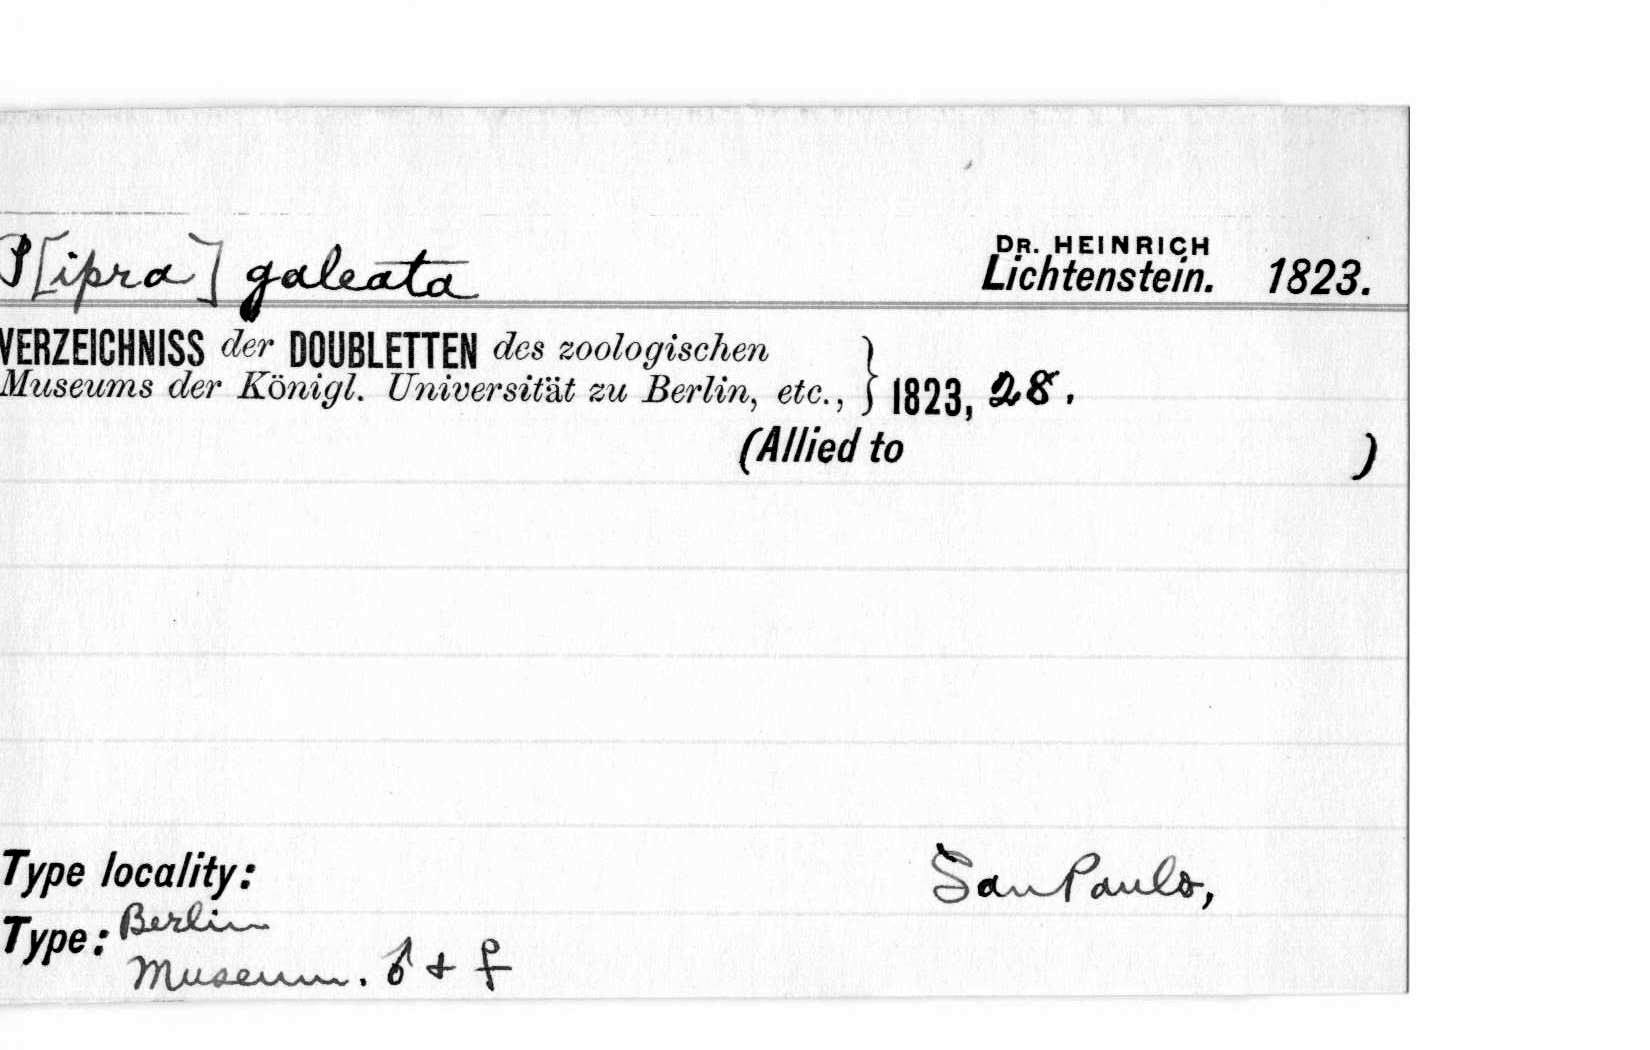 P[ipra] galeata
DR. HEINRICH
Lichtenstein. 1823.
VERZEICHNISS der DOUBLETTEN des zoologischen
Museums der Königl. Universität zu Berlin, etc., } 1823, 28.
(Allied to )
Type locality: San Paulo,
Type: Berlin
Museum. ♂ + ♀